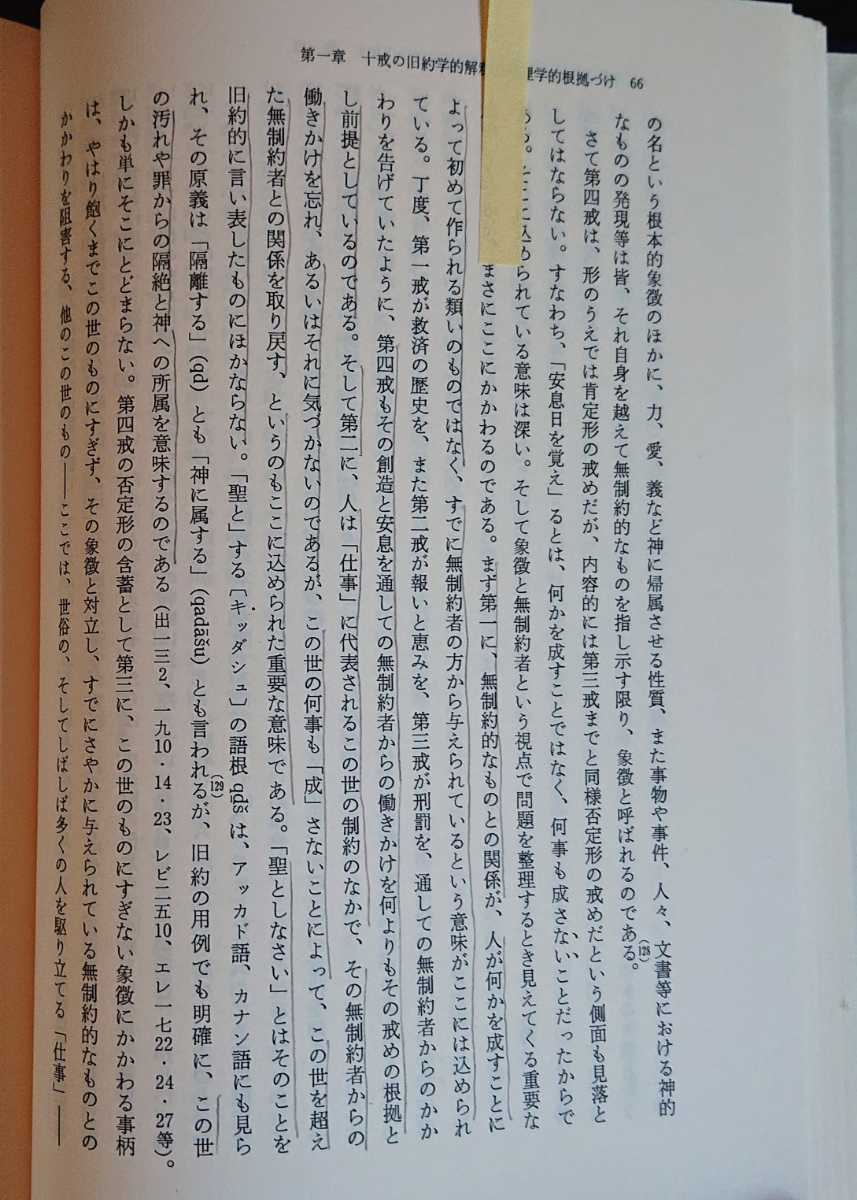 第一章　十戒の旧約学的解釈 理学的根拠づけ　66
の名という根本的象徴のほかに、力、愛、義など神に帰属させる性質、また事物や事件、人々、文書等における神的
なものの発現等は皆、それ自身を越えて無制約的なものを指し示す限り、象徴と呼ばれるのである。(128)
さて第四戒は、形のうえでは肯定形の戒めだが、内容的には第三戒までと同様否定形の戒めだという側面も見落と
してはならない。すなわち、「安息日を覚え」るとは、何かを成すことではなく、何事も成さないことだったからで
ある。そこに込められている意味は深い。そして象徴と無制約者という視点で問題を整理するとき見えてくる重要な
まさにここにかかわるのである。まず第一に、無制約的なものとの関係が、人が何かを成すことに
よって初めて作られる類いのものではなく、すでに無制約者の方から与えられているという意味がここには込められ
ている。丁度、第一戒が救済の歴史を、また第二戒が報いと恵みを、第三戒が刑罰を、通しての無制約者からのかか
わりを告げていたように、第四戒もその創造と安息を通しての無制約者からの働きかけを何よりもその戒めの根拠と
し前提としているのである。そして第二に、人は「仕事」に代表されるこの世の制約のなかで、その無制約者からの
働きかけを忘れ、あるいはそれに気づかないのであるが、この世の何事も「成」さないことによって、この世を超え
た無制約者との関係を取り戻す、というのもここに込められた重要な意味である。「聖としなさい」とはそのことを
旧約的に言い表したものにほかならない。「聖と」する〔キッダシュ〕の語根 qdš は、アッカド語、カナン語にも見ら
れ、その原義は「隔離する」(qd) とも「神に属する」(qadāšu) とも言われるが、(129)旧約の用例でも明確に、この世
の汚れや罪からの隔絶と神への所属を意味するのである（出一三2、一九10・14・23、レビ二五10、エレ一七22・24・27等）。
しかも単にそこにとどまらない。第四戒の否定形の含蓄として第三に、この世のものにすぎない象徴にかかわる事柄
は、やはり飽くまでこの世のものにすぎず、その象徴と対立し、すでにさやかに与えられている無制約的なものとの
かかわりを阻害する、他のこの世のもの――ここでは、世俗の、そしてしばしば多くの人を駆り立てる「仕事」――